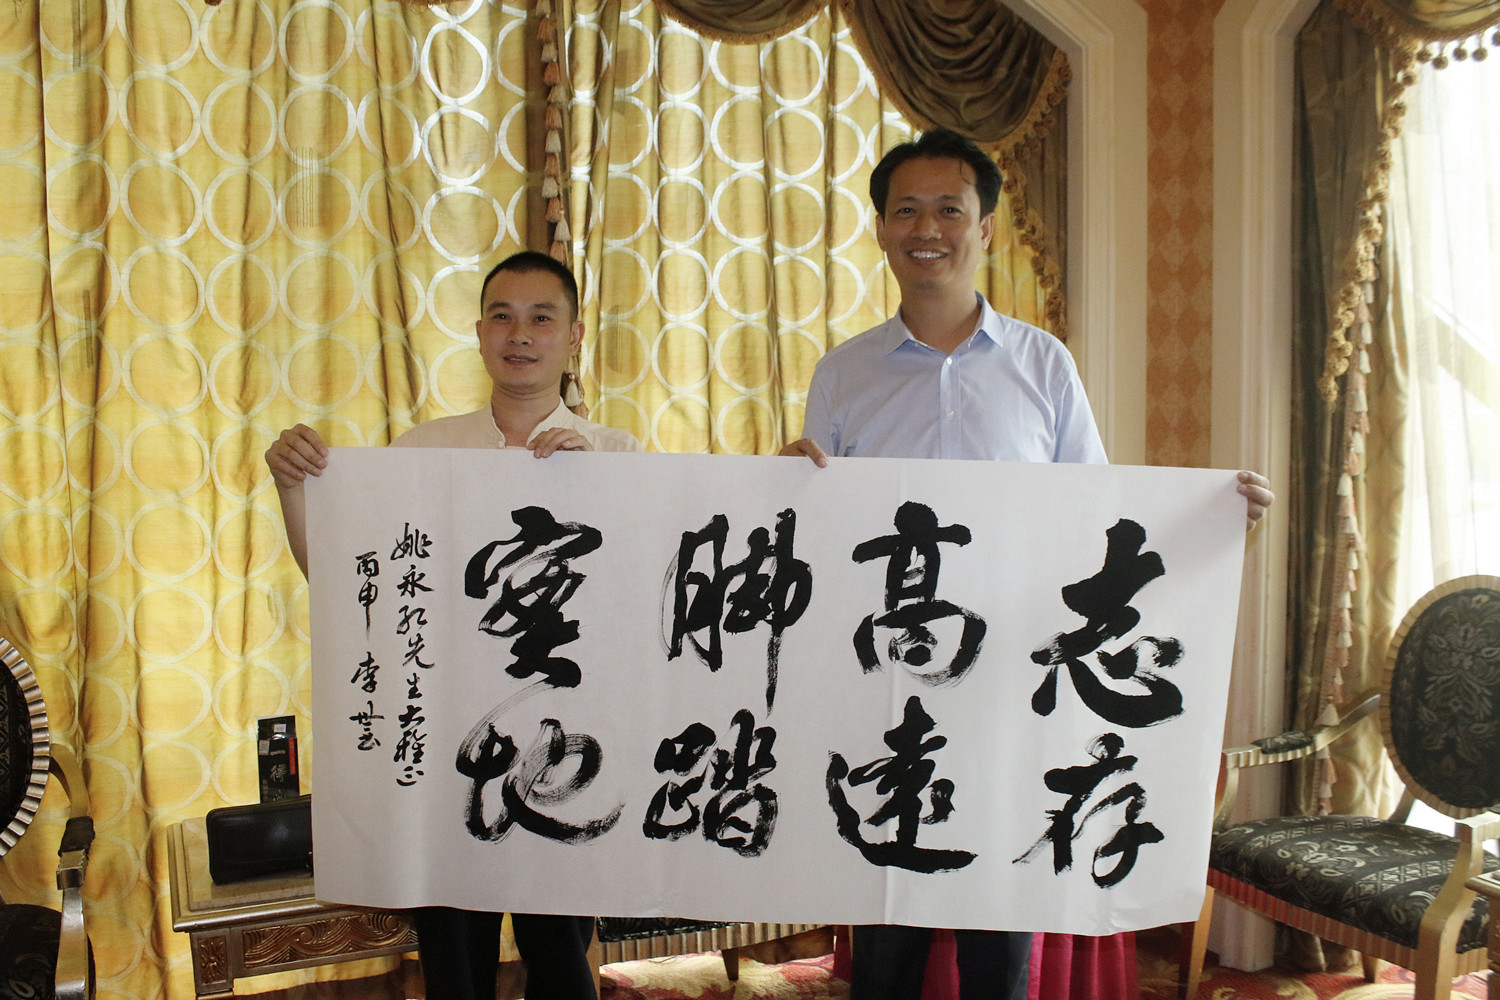 志存
高遠
脚踏
实地
姚永红先生大雅正
丙申 李世芸